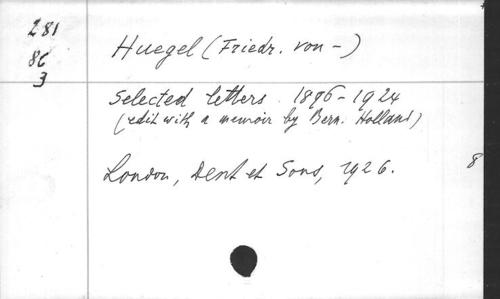 281
86
3
Huegel (Friedr. von -)
Selected letters. 1896-1924
(edit with a memoir by Bern. Holland)
London, Dent et Sons, 1926.
8